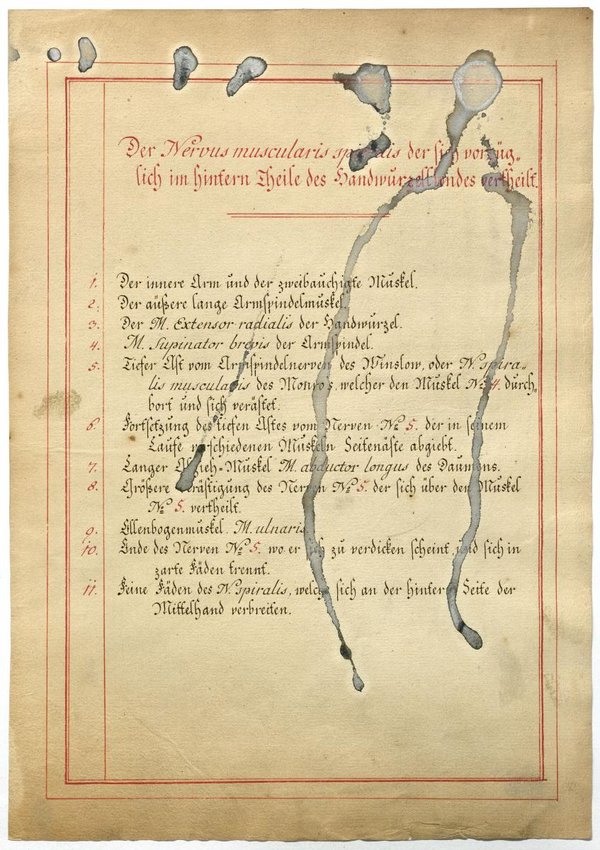 Der Nervus muscularis spiralis der sich vorzüg-
lich im hintern Theile des Handwurzelendes vertheilt.
1. Der innere Arm und der zweibauchigte Muskel.
2. Der äußere lange Armspindelmuskel.
3. Der M. Extensor radialis der Handwurzel.
4. M. Supinator brevis der Armspindel.
5. Tiefer Ast vom Armspindelnerven des Winslow, oder N. spira-
lis muscularis des Monro's, welcher den Muskel No 4. durch-
bort und sich verästet.
6. Fortsetzung des tiefen Astes vom Nerven No 5. der in seinem
Laufe verschiedenen Muskeln Seitenäste abgiebt.
7. Langer Abzieh-Muskel M. abductor longus des Daumens.
8. Größere Verästigung des Nerven No 5. der sich über den Muskel
No 5. vertheilt.
9. Ellenbogenmuskel. M. ulnaris
10. Ende des Nerven No 5. wo er sich zu verdicken scheint, und sich in
zarte Fäden trennt.
11. Feine Fäden des N. spiralis, welche sich an der hintern Seite der
Mittelhand verbreiten.